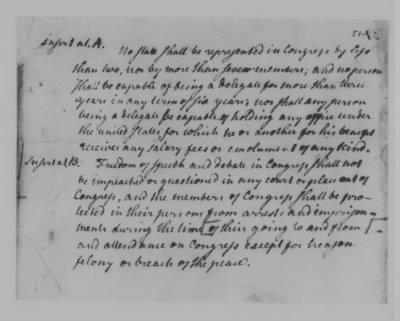 Insert at A. No state shall be represented in Congress by less
than two, nor by more than seven members; and no person
shall be capable of being a delegate for more than three
years in any term of six years; nor shall any person
being a delegate be capable of holding any office under
the united states for which he or another for his benefit
receives any salary fees or emolument of any kind.
Insert at B. Freedom of speech and debate in Congress shall not
be impeached or questioned in any court or place out of
Congress, and the members of Congress shall be pro-
tected in their persons from arrests and imprison-
ments during the time of their going to and from
and attendance on Congress except for treason
felony or breach of the peace.